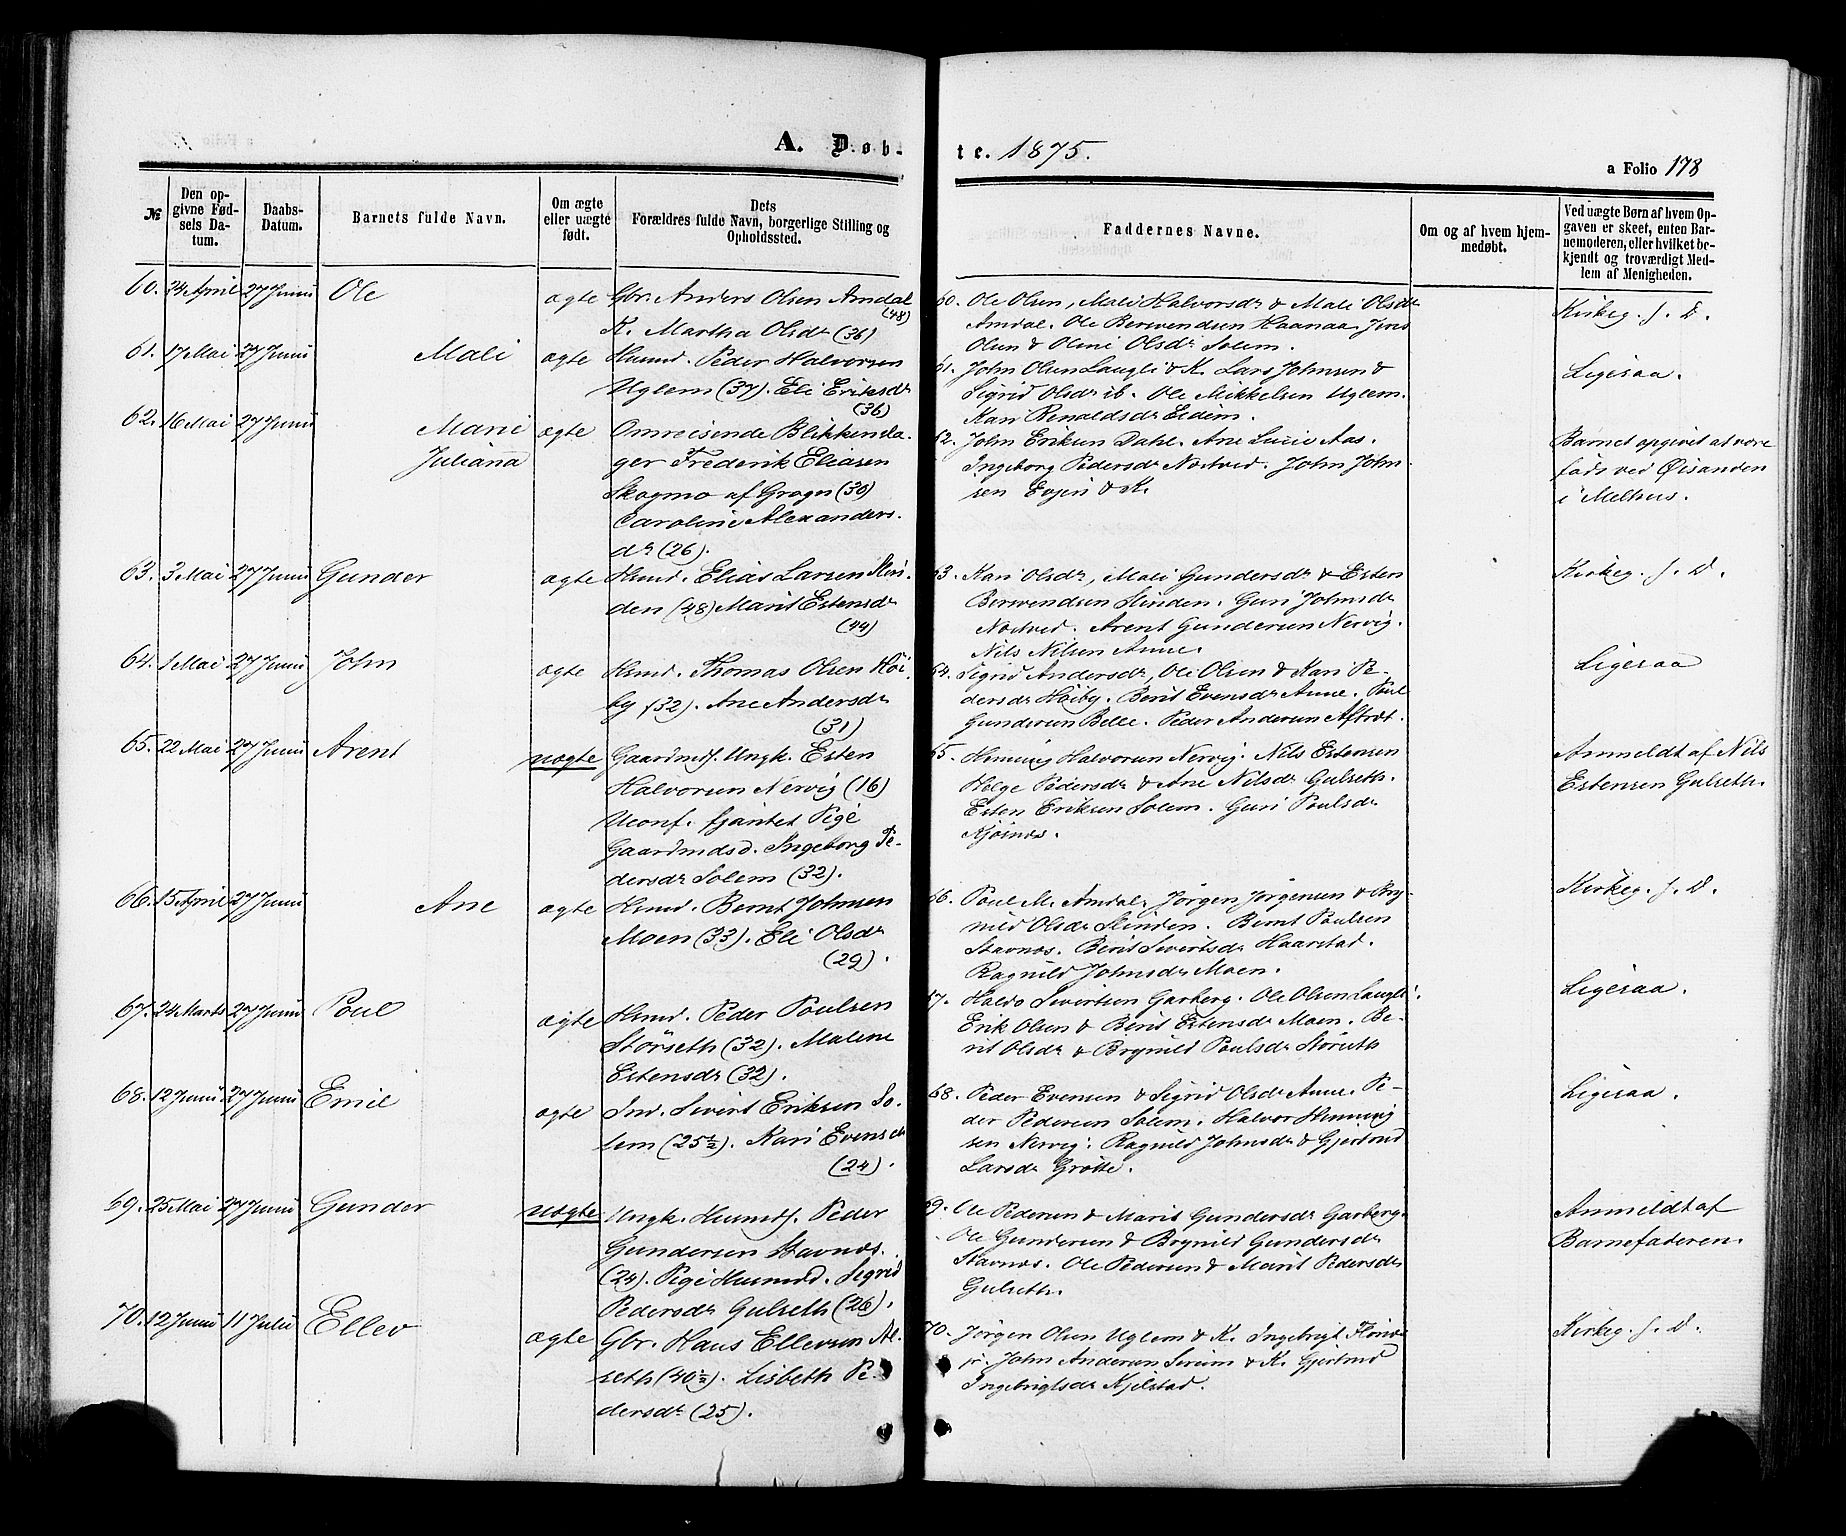 A. Døb-
te. 1875.
a Folio 178
№
Den op-
givne Fød-
sels Da-
tum.
Daabs-
Datum.
Barnets fulde Navn.
Om ægte
eller uægte
født.
Dets
Forældres fulde Navn, borgerlige Stilling og
Opholdssted.
Faddernes Navne.
Om og af hvem hjem-
medøbt.
Ved uægte Børn af hvem Op-
gaven er skeet, enten Bar-
nemoderen, eller hvilket be-
kjendt og troværdigt Med-
lem af Menigheden.
60. 24 April 27 Juni Ole ægte
Gbr. Anders Olsen Amdal
(48)
K. Martha Olsdr (36)
60. Ole Olsen, Mali Halvorsdr & Mali Olsdr
Amdal. Ole Berwendsen Haanaa. Jens
Olsen & Oline Olsdr Solem.
Kirkeg. f. D.
61. 17 Mai 27 Juni Mali ægte
Husmd. Peder Halvorsen
Uglem (37). Eli Eriksdr
(36)
61. John Olsen Laugli & K. Lars Johnsen &
Sigrid Olsdr ib. Ole Mikkelsen Uglem.
Kari Renaldsdr Eidem.
Ligesaa.
62. 16 Mai 27 Juni Marie
Juliana
ægte
Omreisende Blikkensla-
ger Frederik Eliasen
Skogmo af Grogn (30)
Caroline Alexanders-
dr (26).
62. John Eriksen Dahl. Ane Lucie Aas.
Ingeborg Pedersdr Nostved. John John-
sen Evjen & K.
Barnet opgivet at være
født ved Øisanden
i Melhus.
63. 3 Mai 27 Juni Gunder ægte
Husmd. Elias Larsen Slin-
den (48) Marit Estensdr
(44)
63. Kari Olsdr, Mali Gundersdr & Esten
Berwendsen Slinden. Guri Johnsdr
Nostved. Arent Gundersen Nervig.
Nils Nilsen Aune.
Kirkeg. f. D.
64. 1 Mai 27 Juni John ægte
Husmd. Thomas Olsen Høi-
by (32). Ane Andersdr
(31)
64. Sigrid Andersdr, Ole Olsen & Kari Pe-
dersdr Høiby. Berit Evensdr Aune. Poul
Gundersen Belle. Peder Andersen Aftret.
Ligesaa
65. 22 Mai 27 Juni Arent uægte
Gaardmds. Ungk. Esten
Halvorsen Nervig (16)
Uconf. tjenstet Pige
Gaardmdsd. Ingeborg Pe-
dersdr Solem (32).
65. Henning Halvorsen Nervig. Nils Estensen
Helge Pedersdr & Ane Nilsdr Gulseth.
Esten Eriksen Solem. Guri Poulsdr
Kjøsnæs.
Anmeldt af Nils
Estensen Gulseth.
66. 15 April 27 Juni Ane ægte
Husmd. Bernt Johnsen
Moen (33). Eli Olsdr
(29).
66. Poul M. Amdal. Jørgen Jørgensen & Bry-
nild Olsdr Slinden. Bernt Poulsen
Stavnæs. Berit Sivertsdr Haarstad.
Ragnild Johnsdr Moen.
Kirkeg. f. D.
67. 24 Marts 27 Juni Poul ægte
Husmd. Peder Poulsen
Størseth (32). Malene
Estensdr (32).
67. Haldo Sivertsen Garberg. Ole Olsen Laugli.
Erik Olsen & Berit Estensdr Moen. Be-
rit Olsdr & Brynild Poulsdr Størseth
Ligesaa.
68. 12 Juni 27 Juni Emil ægte
Ind. Sivert Eriksen So-
lem (25½). Kari Evensdr
(24).
68. Peder Evensen & Sigrid Olsdr Aune. Pe-
der Pedersen Solem. Halvor Henning-
sen Nervig. Ragnild Johnsdr & Gjertrud
Larsdr Grøtte.
Ligesaa.
69. 25 Mai 27 Juni Gunder uægte
Ungk. Husmds. Peder
Gundersen Stavnæs.
(24). Pige Husmdd. Sigrid
Pedersdr Gulseth (26).
69. Ole Pedersen & Marit Gundersdr Garberg.
Ole Gundersen & Brynild Gundersdr
Stavnæs. Ole Pedersen & Marit Pedersdr
Gulseth.
Anmeldt af
Barnefaderen.
70. 12 Juni 11 Juli Ellev ægte
Gbr. Hans Ellevsen Al-
seth (40½). Lisbeth Pe-
dersdr (25).
70. Jørgen Olsen Uglem & K. Ingebrigt Flønæs
jr. John Andersen Sesum & K. Gjertrud
Ingebrigtsdr Kjelstad.
Kirkeg. f. D.